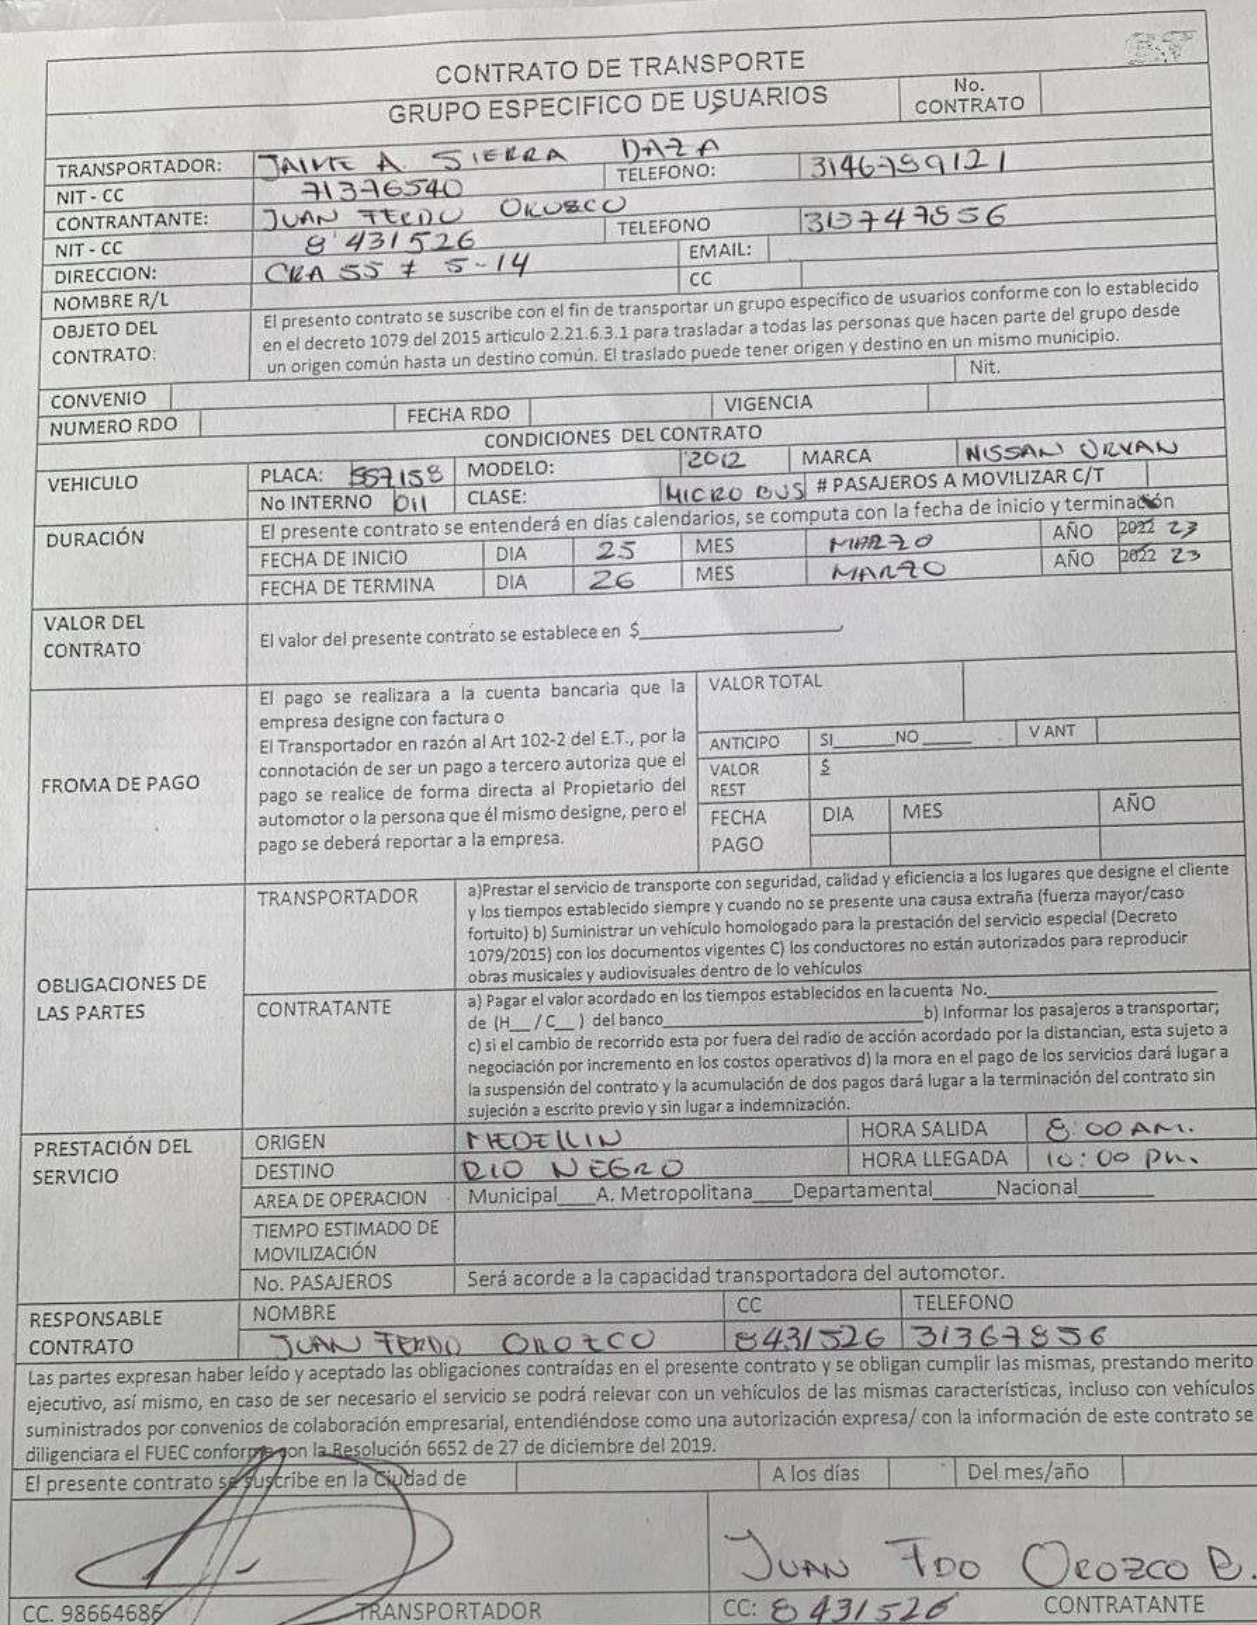 CONTRATO DE TRANSPORTE
GRUPO ESPECIFICO DE USUARIOS No. CONTRATO
TRANSPORTADOR: JAIME A. SIERRA DAZA
NIT - CC 71376540 TELEFONO: 3146759121
CONTRANTANTE: JUAN FERDO OROZCO
NIT - CC 8'431526 TELEFONO
DIRECCION: CRA 55 # 5-14 EMAIL:
NOMBRE R/L CC
OBJETO DEL CONTRATO: El presento contrato se suscribe con el fin de transportar un grupo específico de usuarios conforme con lo establecido
en el decreto 1079 del 2015 articulo 2.21.6.3.1 para trasladar a todas las personas que hacen parte del grupo desde
un origen común hasta un destino común. El traslado puede tener origen y destino en un mismo municipio.
CONVENIO Nit.
NUMERO RDO FECHA RDO VIGENCIA
CONDICIONES DEL CONTRATO
VEHICULO PLACA: MODELO: 2012 MARCA NISSAN URVAN
No INTERNO 011 CLASE: MICRO BUS # PASAJEROS A MOVILIZAR C/T
DURACIÓN El presente contrato se entenderá en días calendarios, se computa con la fecha de inicio y terminación
FECHA DE INICIO DIA 25 MES MARZO AÑO 2022 23
FECHA DE TERMINA DIA 26 MES MARZO AÑO 2022 23
VALOR DEL CONTRATO El valor del presente contrato se establece en $
FROMA DE PAGO
El pago se realizara a la cuenta bancaria que la
empresa designe con factura o
El Transportador en razón al Art 102-2 del E.T., por la
connotación de ser un pago a tercero autoriza que el
pago se realice de forma directa al Propietario del
automotor o la persona que él mismo designe, pero el
pago se deberá reportar a la empresa.
VALOR TOTAL
ANTICIPO SI_____NO_____ V ANT
VALOR REST $
FECHA PAGO DIA MES AÑO
OBLIGACIONES DE LAS PARTES
TRANSPORTADOR a)Prestar el servicio de transporte con seguridad, calidad y eficiencia a los lugares que designe el cliente
y los tiempos establecido siempre y cuando no se presente una causa extraña (fuerza mayor/caso
fortuito) b) Suministrar un vehículo homologado para la prestación del servicio especial (Decreto
1079/2015) con los documentos vigentes C) los conductores no están autorizados para reproducir
obras musicales y audiovisuales dentro de lo vehículos
CONTRATANTE a) Pagar el valor acordado en los tiempos establecidos en la cuenta No.
de (H__ / C__ ) del banco____________b) Informar los pasajeros a transportar;
c) si el cambio de recorrido esta por fuera del radio de acción acordado por la distancian, esta sujeto a
negociación por incremento en los costos operativos d) la mora en el pago de los servicios dará lugar a
la suspensión del contrato y la acumulación de dos pagos dará lugar a la terminación del contrato sin
sujeción a escrito previo y sin lugar a indemnización.
PRESTACIÓN DEL SERVICIO
ORIGEN MEDELLIN HORA SALIDA 8:00 AM.
DESTINO RIO NEGRO HORA LLEGADA 10:00 pm.
AREA DE OPERACION Municipal____A. Metropolitana____Departamental______Nacional_______
TIEMPO ESTIMADO DE MOVILIZACIÓN
No. PASAJEROS Será acorde a la capacidad transportadora del automotor.
RESPONSABLE CONTRATO NOMBRE CC TELEFONO
JUAN FERDO OROZCO 8431526 31367856
Las partes expresan haber leído y aceptado las obligaciones contraídas en el presente contrato y se obligan cumplir las mismas, prestando merito
ejecutivo, así mismo, en caso de ser necesario el servicio se podrá relevar con un vehículos de las mismas características, incluso con vehículos
suministrados por convenios de colaboración empresarial, entendiéndose como una autorización expresa/ con la información de este contrato se
diligenciara el FUEC conforme con la Resolución 6652 de 27 de diciembre del 2019.
El presente contrato se suscribe en la Ciudad de A los días Del mes/año
JUAN FDO OROZCO B.
CC. 98664686 TRANSPORTADOR CC: 8431526 CONTRATANTE